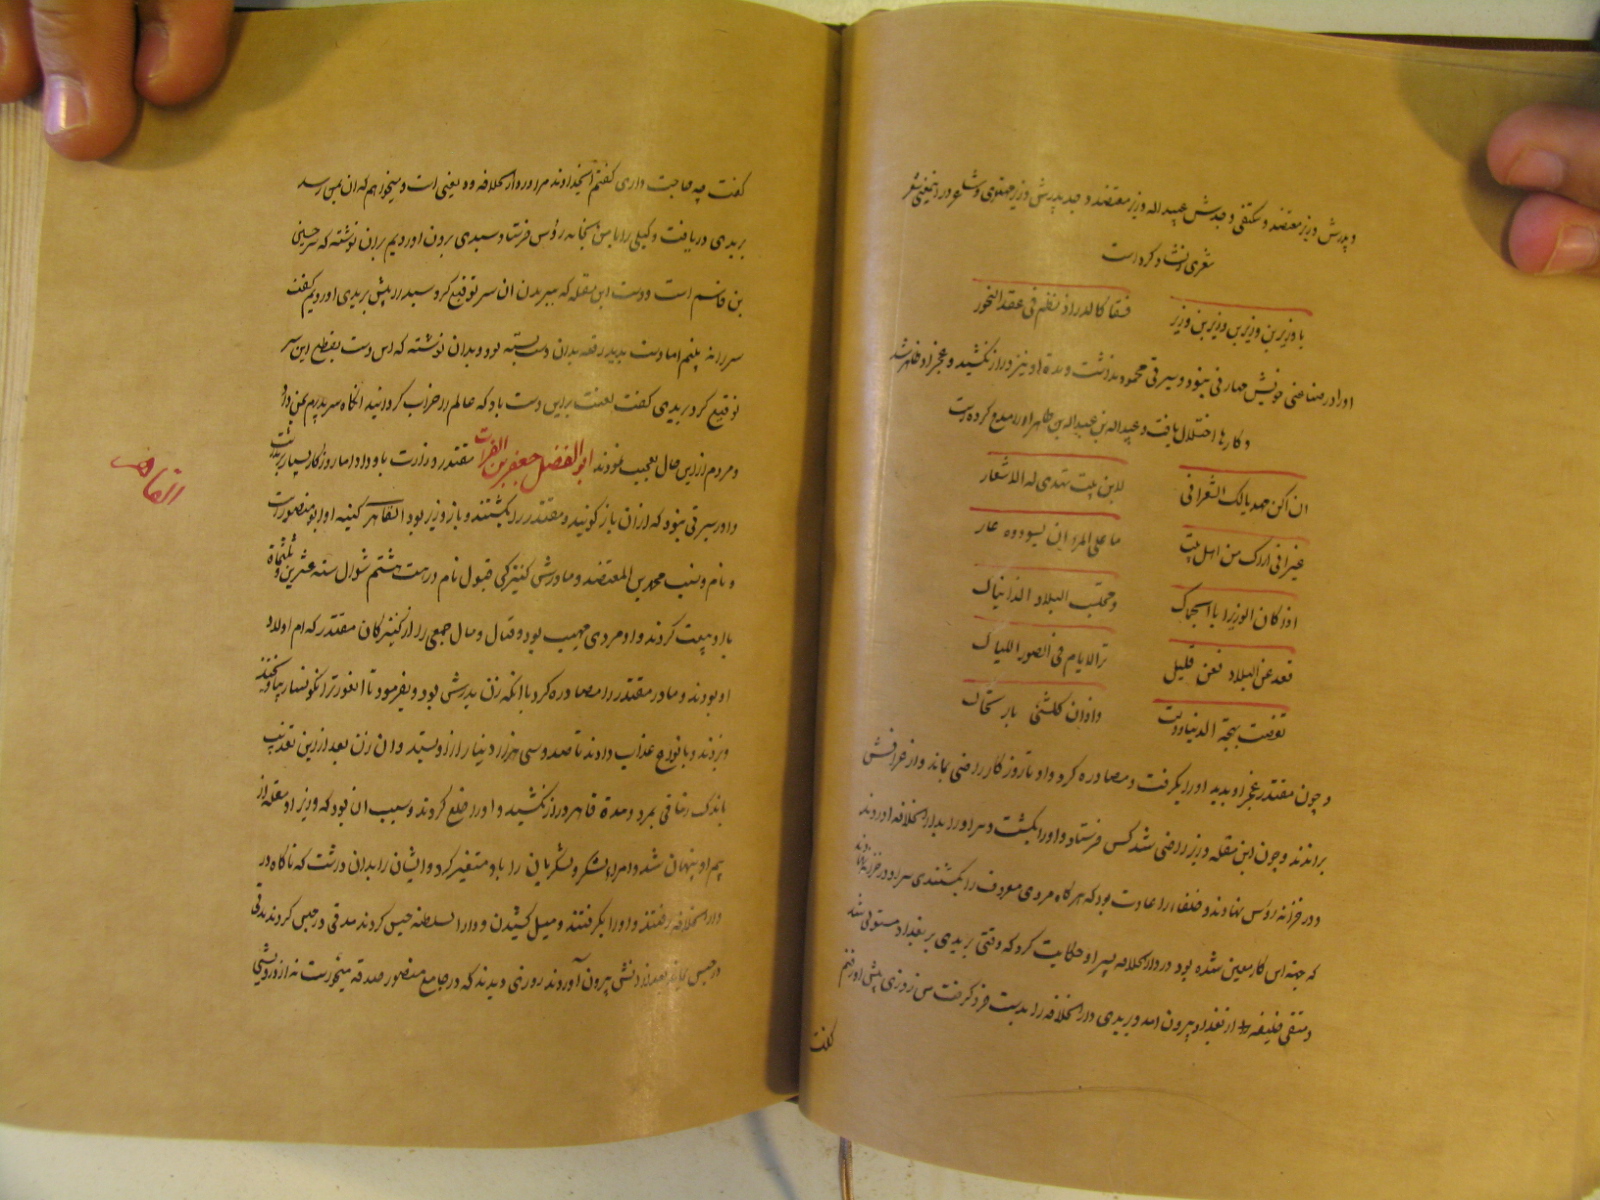 و پدرش وزیر معتضد و مکتفی و جدش عبید اله وزیر معتضد و جد پدرش وزیر مهتدی و شاعر در این معنی
شعری انشاد کرده است
یا وزیر بن وزیر بن وزیر بن وزیر
نسقا کالدر اذ نظم فی عقد النحور
او را در صناعتی خویش مهارتی نبود و سیرتی محمود نداشت و مدة او نیز دراز نکشید و عجز او ظاهر شد
و کارها اختلال یافت و عبید اله بن عبد اله بن طاهر او را مدح کرده است
ان اکن مهدیا لک الشعر انی
لابن بیت تهدی له الاشعار
غیر انی اراک من اهل بیت
ما علی المرء ان یسودوه عار
اذا کان الوزیر
و مجلب البلاد
فعد عن البلاد فعن قلیل
الایام فی الصور اللیال
بهجة الدنیا
و چون مقتدر عجز او بدید او را بگرفت و مصادره کرد و او تا روزگار راضی بماند و از عراقش
براندند و چون ابن مقله وزیر راضی شد کس فرستاد و او را بکشت و سر او را بدار الخلافه اوردند
و در خزانه رؤس نهادند و خلفاء را عادت بود که هرگاه مردی معروف را بکشتندی سر او در خزانه
که جهة این کار معین شده بود در دار الخلافه پسر او حکایت کرد که وقتی بریدی بر بغداد مستولی شد
و متقی خلیفه از بغداد بیرون امد و بریدی دار الخلافه را بدست فرو گرفت من روزی پیش او رفتم
گفت
گفت چه حاجت داری گفتم اینجد اوند مرا در دار الخلافه ودیعتی است و میخواهم که ان بمن رسد
بریدی دریافت و کیلی را با من بخزانه رؤس فرستاد و سبدی برون اوردیم بران نوشته که سر حسین
بن قاسم است و دست ابن مقله که ببریدن ان سر توقیع کرد سبد را پیش بریدی اوردیم گفت
سر را نه بینم اما دست بدید رقعه بدان دست بسته بود و بدان نوشته که این دست بقطع این سر
توقیع کرد بریدی گفت لعنت برین دست باد که عالم را خراب گردانید انگاه سر پدرم بمن داد
و مردم ازین حال تعجب نمودند ابو الفضل جعفر بن الفرات مقتدر وزارت باو داد اما روزگار بسیار نداشت
و او را سیرتی نبود که ازان باز گویند و مقتدر را بکشتند و باز وزیر بود القاهر کنیه او ابو منصور است
و نام و نسب محمد بن المعتضد و مادرش کنیزکی قبول نام در بیست هشتم شوال سنه عشرین و ثلثمائة
با او بیعت کردند و او مردی مهیب بود و قتال و مال جمعی را از کنیزکان مقتدر که ام اولاد
او بودند و مادر مقتدر را مصادره کرد با انکه زن پدرش بود و بفرمود تا انعورترا نگونسار بیاویختند
و بزدند و بانواع عذاب دادند تا صد و سی هزار دینار ازو بستد و ان زن بعد ازین تعذیب
باندک زمانی بمرد و مدة قاهر دراز نکشید و او را خلع کردند و سبب ان بود که وزیر او ابن مقله از
بیم او پنهان شد و امراء لشکر و لشکریان را با او متغیر کرد و ایشان را بدان داشت که ناگاه در
دار الخلافه رفتند و او را بگرفتند و میل کشیدن و دار السلطنه حبس کردند مدتی در حبس کردند مدتی
در حبس بماند بعد از انش بیرون آوردند روزی دیدند که در جامع منصور صدقه میخواست نه از درویشی
القاهر